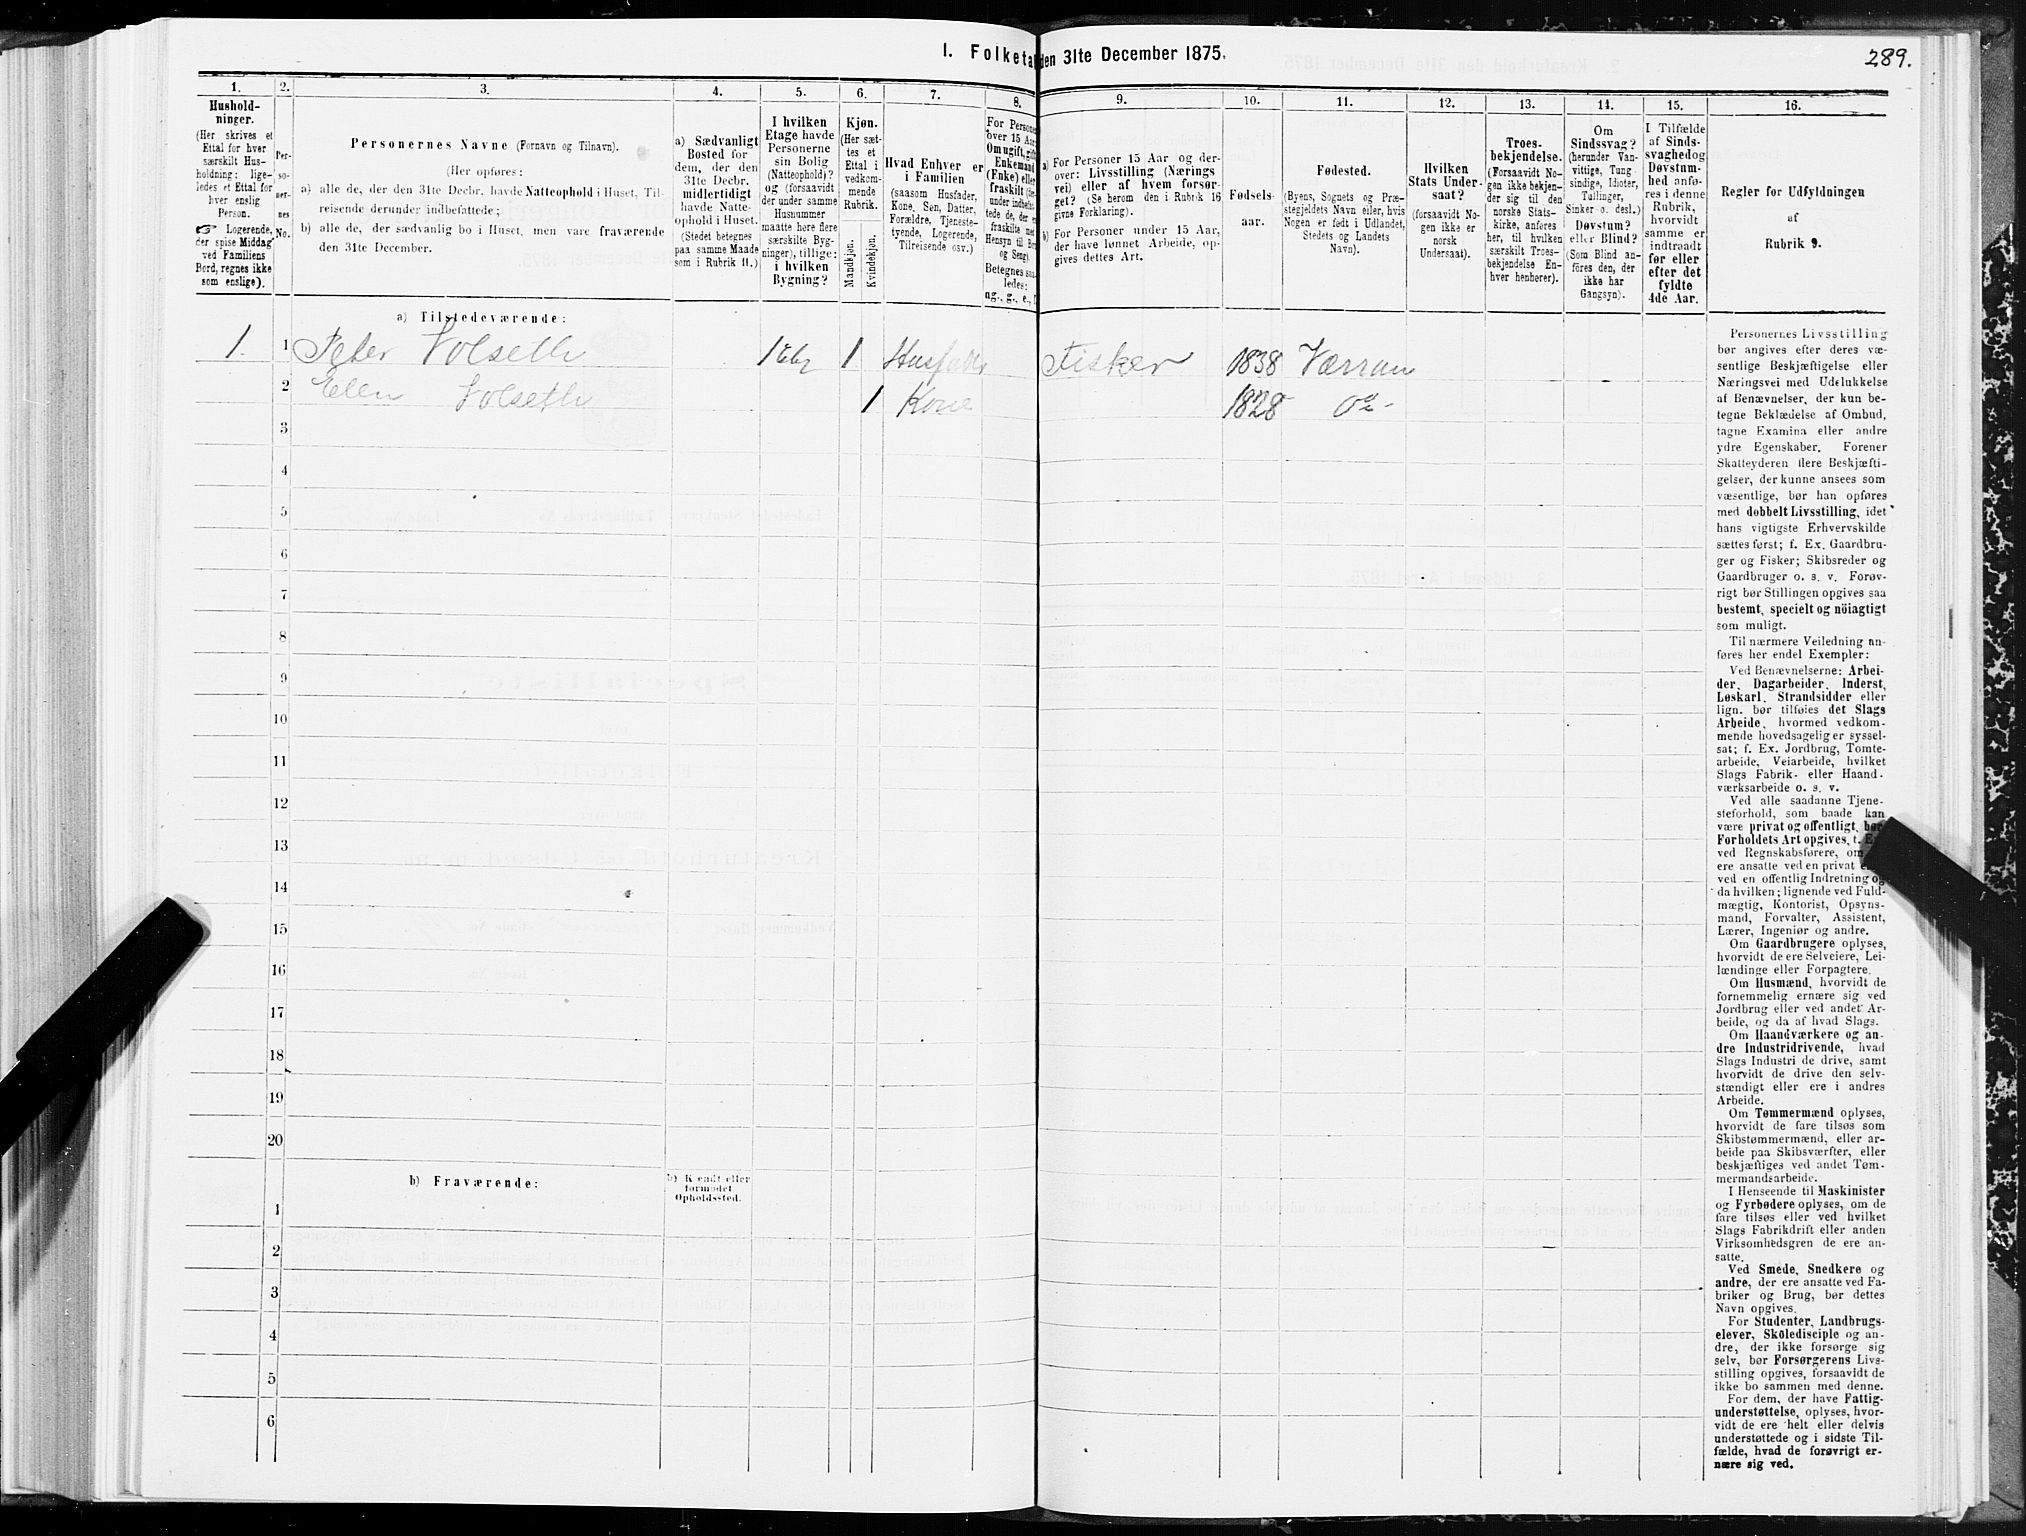 289.
I. Folketa den 31te December 1875.
1.
Hushold-
ninger.
(Her skrives et
Ettal for hver
særskilt Hus-
holdning; lige-
ledes et Ettal for
hver enslig
Person.
☞ Logerende,
der spise Middag
ved Familiens
Bord, regnes ikke
som enslige).
2.
Per-
so-
ner-
nes
No.
3.
Personernes Navne (Fornavn og Tilnavn).
(Her opføres:
a) alle de, der den 31te Decbr. havde Natteophold i Huset, Til-
reisende derunder indbefattede;
b) alle de, der sædvanlig bo i Huset, men vare fraværende
den 31te December.
4.
a) Sædvanligt
Bosted for
dem, der den
31te Decbr.
midlertidigt
havde Natte-
ophold i Huset.
(Stedet betegnes
paa samme Maade
som i Rubrik 11.)
5.
I hvilken
Etage havde
Personerne
sin Bolig
(Natteophold)?
og (forsaavidt
der under samme
Husnummer
maatte høre flere
særskilte Byg-
ninger), tillige:
i hvilken
Bygning?
6.
Kjøn.
(Her sæt-
tes et
Ettal i
vedkom-
mende
Rubrik.
Mandkjøn.
Kvindekjøn.
7.
Hvad Enhver er
i Familien
(saasom Husfader,
Kone, Søn, Datter,
Forældre, Tjeneste-
tyende, Logerende,
Tilreisende osv.)
8.
For Persone
over 15 Aar
Om ugift, gift
Enkemand
(Enke) eller
fraskilt
under indbefat-
tede de, der
fraskilte m
Hensyn til Bo
og Seng).
Betegnes saa
ledes:
ug., g., e., f
9.
a) For Personer 15 Aar og der-
over: Livsstilling (Nærings
vei) eller af hvem forsør-
get? (Se herom den i Rubrik 16
givne Forklaring).
b) For Personer under 15 Aar,
der have lønnet Arbeide, op-
gives dettes Art.
10.
Fødsels-
aar.
11.
Fødested.
(Byens, Sognets og Præ-
stegjeldets Navn eller, hvis
Nogen er født i Udlandet,
Stedets og Landets
Navn).
12.
Hvilken
Stats Under-
saat?
(forsaavidt No-
gen ikke er
norsk
Undersaat).
13.
Troes-
bekjendelse.
(Forsaavidt No-
gen ikke bekjen-
der sig til den
norske Stats-
kirke, anføres
her, til hvilken
særskilt Troes-
bekjendelse En-
hver henhører).
14.
Om
Sindssvag?
(herunder Van-
vittige, Tung
sindige, Idioter,
Tullinger,
Sinker o. desl.)
Døvstum?
eller Blind?
(Som Blind an-
føres den, der
ikke har
Gangsyn).
15.
I Tilfælde
af Sinds-
svaghedog
Døvstum-
hed anfø-
res i denne
Rubrik,
hvorvidt
samme er
indtraadt
før eller
efter det
fyldte
4de Aar.
16.
Regler for Udfyldningen
af
Rubrik 9.
a) Tilstedeværende:
1 1 Peter Volseth 1 Etg 1 Husfader Fisker 1838 Værran
2 Ellen Volseth 1 Kone 1828 do-
3
4
5
6
7
8
9
10
11
12
13
14
15
16
17
18
19
20
b) Fraværende:
b) Kjendt eller
formodet
Opholdssted.
1
2
3
4
5
6
Personernes Livsstilling
bør angives efter deres væ-
sentlige Beskjæftigelse eller
Næringsvei med Udelukkelse
af Benævnelser, der kun be-
tegne Beklædelse af Ombud,
tagne Examina eller andre
ydre Egenskaber. Forener
Skatteyderen flere Beskjæfti-
gelser, der kunne ansees som
væsentlige, bør han opføres
med dobbelt Livsstilling, idet
hans vigtigste Erhvervskilde
sættes først; f. Ex. Gaardbru-
ger og Fisker; Skibsreder og
Gaardbruger o. s. v. Forøv-
rigt bør Stillingen opgives saa
bestemt, specielt og nöiagtigt
som muligt.
Til nærmere Veiledning an-
føres her endel Exempler:
Ved Benævnelserne: Arbei-
der, Dagarbeider, Inderst,
Løskarl, Strandsidder eller
lign. bør tilføies det Slags
Arbeide, hvormed vedkom-
mende hovedsagelig er syssel-
sat; f. Ex. Jordbrug, Tomte-
arbeide, Veiarbeide, hvilket
Slags Fabrik- eller Haand-
værksarbeide o. s. v.
Ved alle saadanne Tjene-
steforhold, som baade kan
være privat og offentligt, bør
Forholdets Art opgives, t. Ex
ved Regnskabsførere, om
ere ansatte ved en privat
ved en offentlig Indretning og
da hvilken; lignende ved Fuld-
mægtig, Kontorist, Opsyns-
mand, Forvalter, Assistent,
Lærer, Ingeniør og andre.
Om Gaardbrugere oplyses,
hvorvidt de ere Selveiere, Lei-
lændinge eller Forpagtere.
Om Husmænd, hvorvidt de
fornemmelig ernære sig ved
Jordbrug eller ved andet Ar-
beide, og da af hvad Slags.
Om Haandværkere og an-
dre Industridrivende, hvad
Slags Industri de drive, samt
hvorvidt de drive den selv-
stændigt eller ere i andres
Arbeide.
Om Tømmermænd oplyses,
hvorvidt de fare tilsøs som
Skibstømmermænd, eller ar-
beide paa Skibsværfter, eller
beskjæftiges ved andet Tøm-
mermandsarbeide.
I Henseende til Maskinister
og Fyrbødere oplyses, om de
fare tilsøs eller ved hvilket
Slags Fabrikdrift eller anden
Virksomhedsgren de ere an-
satte.
Ved Smede, Snedkere og
andre, der ere ansatte ved Fa-
briker og Brug, bør dettes
Navn opgives.
For Studenter, Landbrugs-
elever, Skoledisciple og an-
dre, der ikke forsørge sig
selv, bør Forsørgerens Livs-
stilling opgives, forsaavidt de
ikke bo sammen med denne.
For dem, der have Fattig-
understøttelse, oplyses, hvor-
vidt de ere helt eller delvis
understøttede og i sidste Til-
fælde, hvad de forøvrigt er-
nære sig ved.